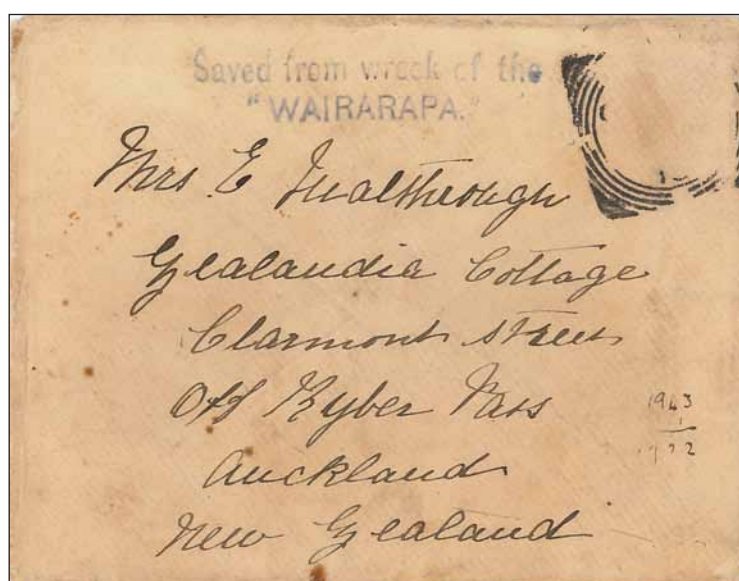 Saved from wreck of the
"WAIRARAPA."
Mrs E Qualthrough
Zealandia Cottage
Clarmont Street
Off Kyber Pass
1943
Auckland
New Zealand